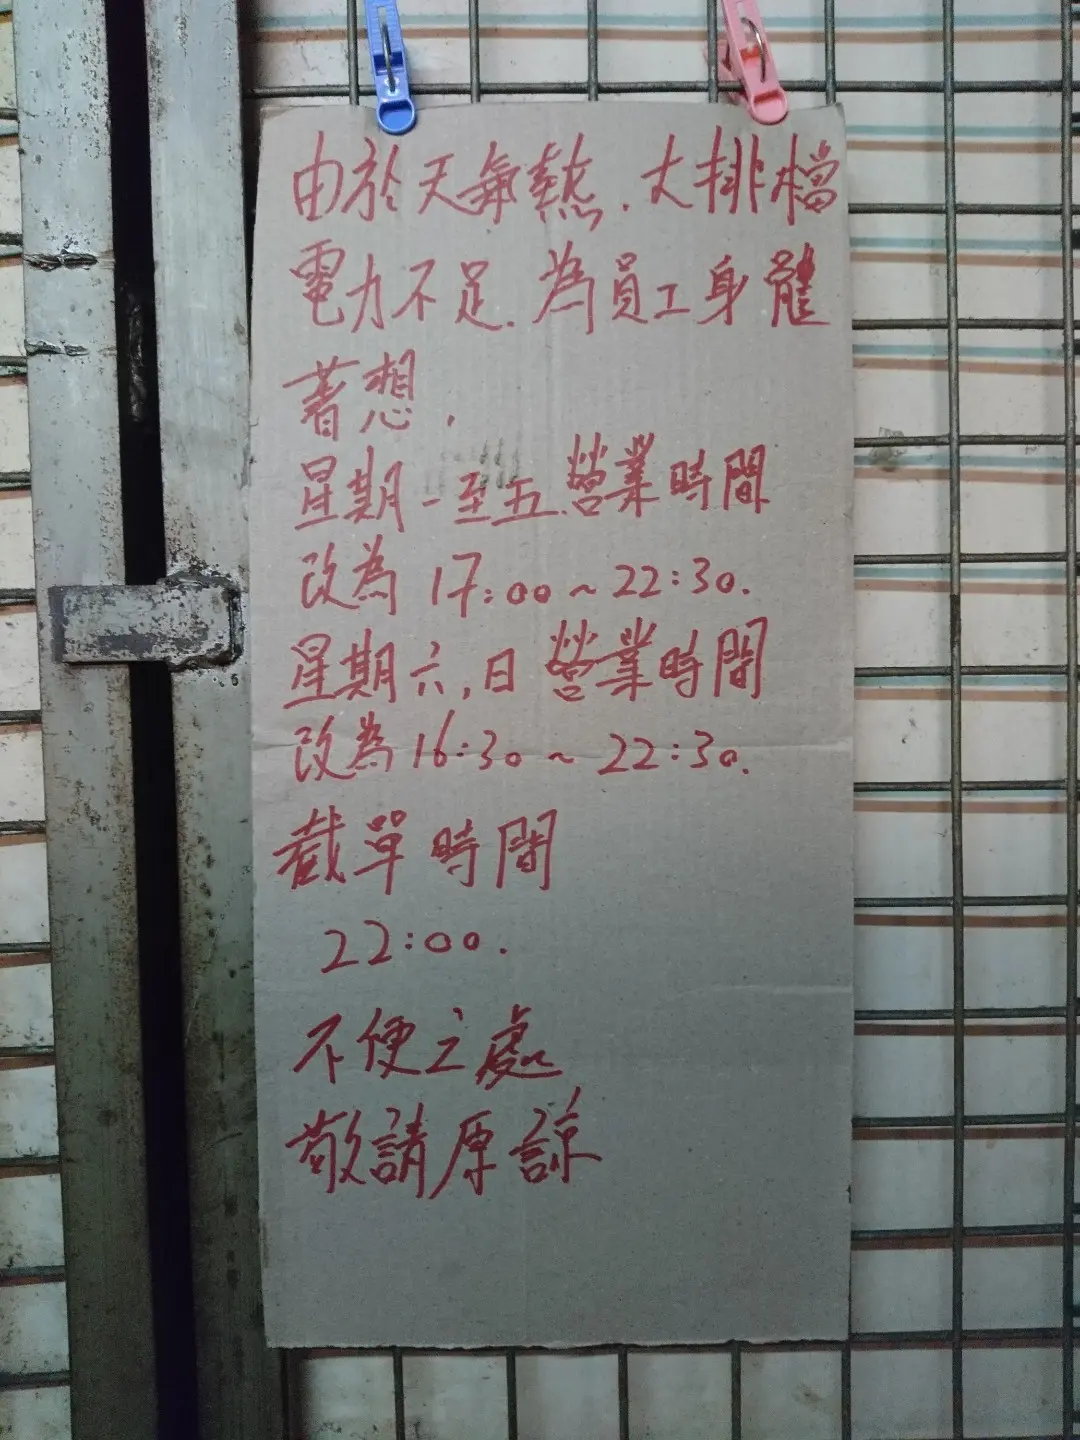 由於天氣熱.大排檔
電力不足.為員工身體
著想,
星期一至五.營業時間
改為 17:00~22:30.
星期六,日 營業時間
改為16:30~22:30.
截單時間
22:00.
不便之處
敬請原諒